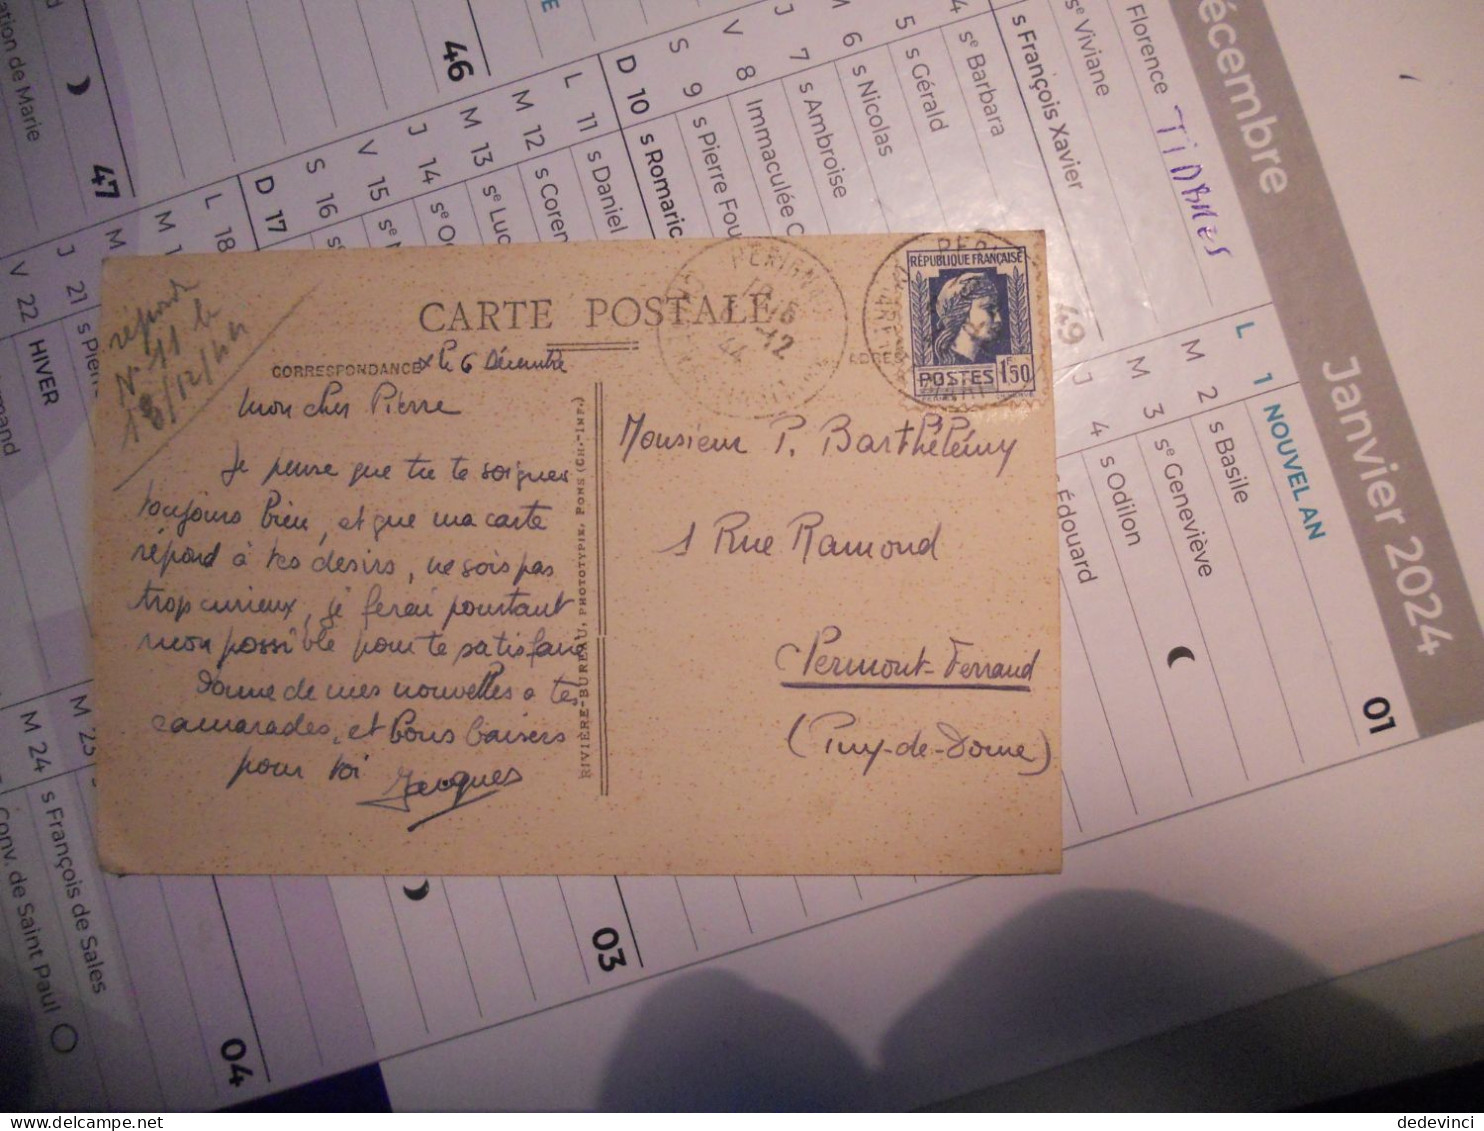 CARTE POSTALE
CORRESPONDANCE
le 6 Décembre
répondu
N° 11 le
18/12/44
Mon cher Pierre
Je pense que tu te soignes
toujours bien, et que ma carte
répond à tes désirs, ne sois pas
trop curieux, je ferai pourtant
mon possible pour te satisfaire
Donne de mes nouvelles a tes
camarades, et bons baisers
pour toi Jacques
RIVIÈRE-BUREAU, PHOTOTYPIE, PONS (CH.-INF.)
RÉPUBLIQUE FRANÇAISE
POSTES 1F50
44
Monsieur P. Barthélémy
1 Rue Ramond
Clermont-Ferrand
(Puy-de-Dome)
Décembre
Florence TIMBRES
se Viviane
s François Xavier
49
4 se Barbara
5 s Gérald
M 6 s Nicolas
J 7 s Ambroise
V 8 Immaculée C
S 9 s Pierre Fou
D 10 s Romaric
L 11 s Daniel
M 12 s Coren
M 13 se Luc
J 14 se O
V 15
S 16
D 17
L 18
46
47
ation de Marie
J 21 s Pierre
V 22 HIVER
mand
Janvier 2024
L 1 NOUVEL AN
M 2 s Basile
M 3 se Geneviève
J 4 s Odilon
Édouard
01
03
M 24 s François de Sales
Conv. de Saint Paul
04
dedevinci